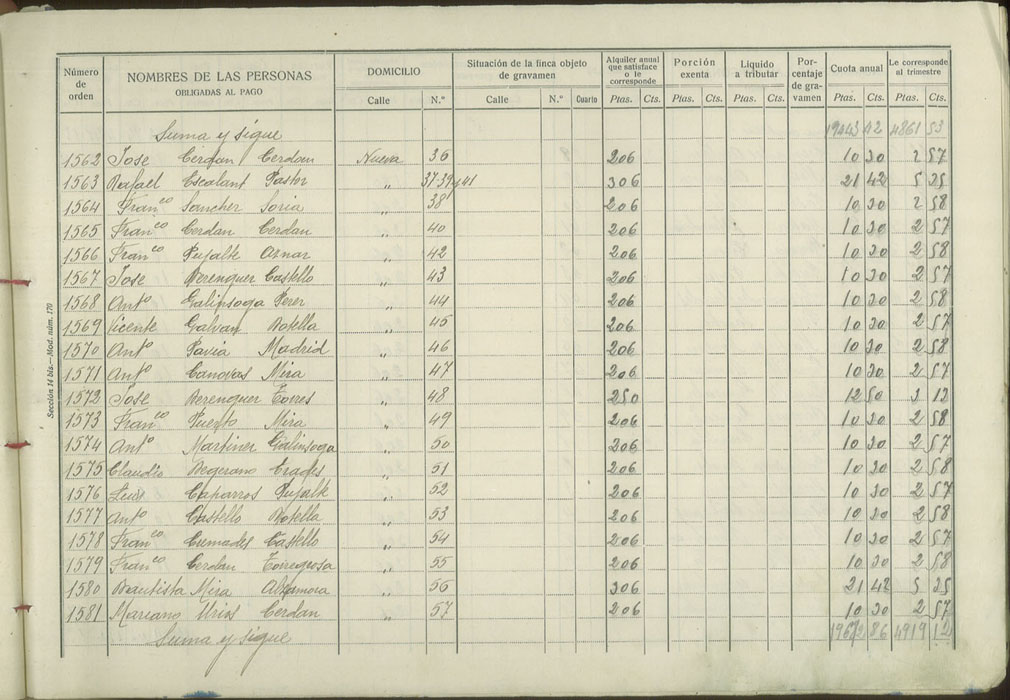 Número de orden NOMBRES DE LAS PERSONAS OBLIGADAS AL PAGO DOMICILIO Situación de la finca objeto de gravamen Alquiler anual que satisface o le corresponde Porción exenta Líquido a tributar Porcentaje de gravamen Cuota anual Le corresponde al trimestre
Calle N.º Calle N.º Cuarto Ptas. Cts. Ptas. Cts. Ptas. Cts. Ptas. Cts. Ptas. Cts.
Suma y sigue 19443 42 4861 53
1562 Jose Cerdan Cerdan Nueva 36 206 10 30 2 57
1563 Rafael Escalant Pastor " 37-39 y 41 306 21 42 5 35
1564 Franco Sancher Soria " 38 206 10 30 2 58
1565 Franco Cerdan Cerdan " 40 206 10 30 2 57
1566 Franco Pujalte Aznar " 42 206 10 30 2 58
1567 Jose Berenguer Castello " 43 206 10 30 2 57
1568 Anto Galinsoga Perer " 44 206 10 30 2 58
1569 Vicente Galvan Botella " 45 206 10 30 2 57
1570 Anto Pavia Madrid " 46 206 10 30 2 58
1571 Anto Canovas Mira " 47 206 10 30 2 57
1572 Jose Berenguer Torres " 48 250 12 50 3 12
1573 Franco Puerto Mira " 49 206 10 30 2 58
1574 Anto Martiner Galinsoga " 50 206 10 30 2 57
1575 Claudio Begerano Erades " 51 206 10 30 2 58
1576 Luis Caparros Pujalte " 52 206 10 30 2 57
1577 Anto Castello Botella " 53 206 10 30 2 58
1578 Franco Cremades Castello " 54 206 10 30 2 57
1579 Franco Cerdan Torregrosa " 55 206 10 30 2 58
1580 Bautista Mira Alzamora " 56 306 21 42 5 35
1581 Mariano Urios Cerdan " 57 206 10 30 2 57
Suma y sigue 86 4919
Sección 14 bis.—Mod. núm. 170